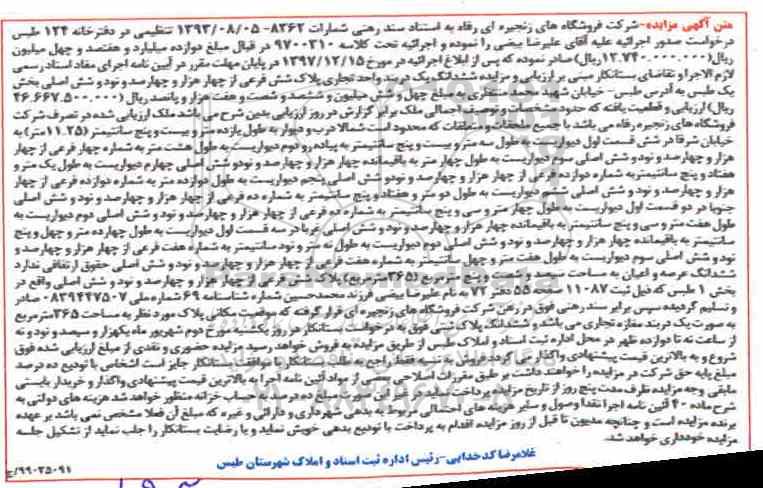 متن آگهی مزایده-شرکت فروشگاه های زنجیره ای رفاه به استناد سند رهنی شمارات ۸۳۶۲-۱۳۹۳/۰۸/۰۵ تنظیمی در دفترخانه ۱۲۴ طبس
درخواست صدور اجرائیه علیه آقای علیرضا بیضی را نموده و اجرائیه تحت کلاسه ۹۷۰۰۳۱۰ در قبال مبلغ دوازده میلیارد و هفتصد و چهل میلیون
ریال(۱۲.۷۴۰.۰۰۰.۰۰۰ریال) صادر نموده که پس از ابلاغ اجرائیه در مورخ ۱۳۹۷/۱۲/۱۵ در پایان مهلت مقرر در آیین نامه اجرای مفاد اسناد رسمی
لازم الاجرا و تقاضای بستانکار مبنی بر ارزیابی و مزایده ششدانگ یک دربند واحد تجاری پلاک شش فرعی از چهار هزار و چهارصد و نود و شش اصلی بخش
یک طبس به آدرس طبس- خیابان شهید محمد منتظری به مبلغ چهل و شش میلیون و ششصد و شصت و هفت هزار و پانصد ریال (۴۶.۶۶۷.۵۰۰.۰۰۰
ریال) ارزیابی و قطعیت یافته که حدود مشخصات و توصیف اجمالی ملک برابر گزارش در روز ارزیابی بدین شرح می باشد ملک ارزیابی شده در تصرف شرکت
فروشگاه های زنجیره رفاه می باشد با جمیع ملحقات و متعلقات که محدود است شمالا درب و دیوار به طول یازده متر و بیست و پنج سانتیمتر (۱۱.۲۵متر) به
خیابان شرقا در شش قسمت اول دیواریست به طول سه متر و بیست و پنج سانتیمتر به پیاده رو دوم دیواریست به طول هشت متر به شماره چهار فرعی از چهار
هزار و چهارصد و نود و شش اصلی سوم دیواریست به طول چهار متر به باقیمانده چهار هزار و چهارصد و نودو شش اصلی چهارم دیواریست به طول یک متر و
هفتاد و پنج سانتیمتر به شماره دوازده فرعی از چهار هزار و چهارصد و نودو شش اصلی پنجم دیواریست به طول دوازده متر به شماره دوازده فرعی از چهار
هزار و چهارصد و نود و شش اصلی ششم دیواریست به طول دو متر و هفتاد و پنج سانتیمتر به شماره ده فرعی از چهار هزار و چهارصد و نود و شش اصلی
جنوبا در دو قسمت اول دیواریست به طول چهار متر و سی و پنج سانتیمتر به شماره ده فرعی از چهار هزار و چهارصد و نود و شش اصلی دوم دیواریست به
طول هفت متر و سی و پنج سانتیمتر به باقیمانده چهار هزار و چهارصد و نود و شش اصلی غربا در سه قسمت اول دیواریست به طول چهارده متر و چهل و پنج
سانتیمتر به باقیمانده چهار هزار و چهارصد و نود و شش اصلی دوم دیواریست به طول نه متر و نود سانتیمتر به شماره هفت فرعی از چهار هزار و چهارصد و
نود و شش اصلی سوم دیواریست به طول هفت متر و چهل سانتیمتر به شماره هفت فرعی از چهار هزار و چهارصد و نود و شش اصلی حقوق ارتفاقی ندارد
ششدانگ عرصه و اعیان به مساحت سیصد و شصت و پنج مترمربع (۳۶۵مترمربع) پلاک شش فرعی از چهار هزار و چهارصد و نود و شش اصلی واقع در
بخش ۱ طبس که ذیل ثبت ۱۱۰۸۷ صفحه ۵۵ دفتر ۷۲ به نام علیرضا بیضی فرزند محمدحسین شماره شناسنامه ۶۹ شماره ملی ۰۸۳۹۴۴۷۵۰۷ صادر
و تسلیم گردیده سپس برابر سند رهنی فوق در رهن شرکت فروشگاه های زنجیره ای قرار گرفته که موقعیت مکانی پلاک مورد نظر به مساحت ۳۶۵مترمربع
به صورت یک دربند مغازه تجاری می باشد و ششدانگ پلاک ثبتی فوق به درخواست بستانکار در روز یکشنبه مورخ دوم شهریور ماه یکهزار و سیصد و نود و نه
از ساعت نه تا دوازده ظهر در محل اداره ثبت اسناد و املاک طبس از طریق مزایده به فروش خواهد رسید مزایده حضوری و نقدی از مبلغ ارزیابی شده فوق
شروع و به بالاترین قیمت پیشنهادی واگذار می گردد فروش به نسیه فقط راجع به طلب بستانکار با توافقت بستانکار جایز است اشخاصی با تودیع ده درصد
مبلغ پایه حق شرکت در مزایده را خواهند داشت بر طبق مقررات اصلاحی بعضی از مواد آئین نامه اجرا به بالاترین قیمت پیشنهادی واگذار و خریدار بایستی
مابقی وجه مزایده ظرف مدت پنج روز از تاریخ مزایده پرداخت نماید در غیر این صورت مبلغ ده درصد به حساب خزانه منظور خواهد شد هزینه های دولتی به
شرح ماده ۴۰ آئین نامه اجرا نقدا وصول و سایر هزینه های احتمالی مربوط به بدهی شهرداری و دارائی و غیره که مبلغ آن فعلا مشخص نمی باشد بر عهده
برنده مزایده است و چنانچه مدیون تا قبل از روز مزایده اقدام به پرداخت با تودیع بدهی خویش نماید و یا رضایت بستانکار را جلب نماید از تشکیل جلسه
مزایده خودداری خواهد شد.
غلامرضا کدخدایی-رئیس اداره ثبت اسناد و املاک شهرستان طبس
۹۹۰۲۵۰۹۱/ج